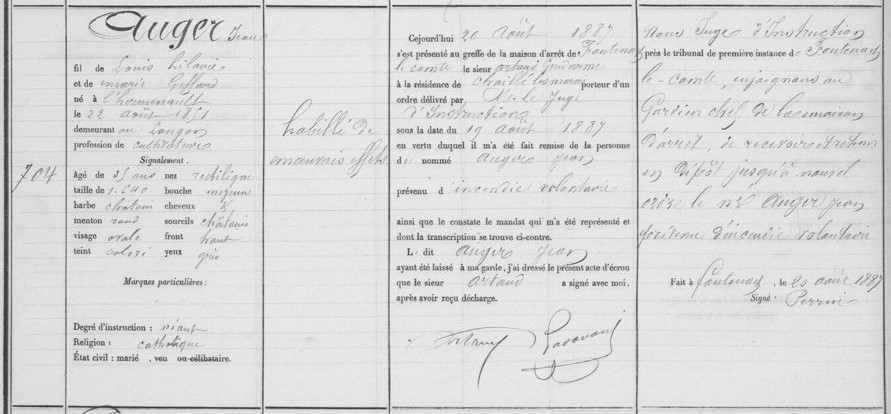 704
Auger Jean
fil de Louis hilaire
et de marie Geffard
né à l'hermenault
le 22 Août 1851
demeurant au Langon
profession de cultivateur
Signalement.
Âgé de 35 ans nez rectiligne
taille de 1.640 bouche moyenne
barbe chatain cheveux d
menton rond sourcils châtains
visage ovale front haut
teint coloré yeux gris
Marques particulières:
Degré d'instruction : néant
Religion : catholique
État civil : marié, veu ou célibataire.
habillé de
mauvais effets
Cejourd'hui 20 Août 1887
s'est présenté au greffe de la maison d'arrêt de Fontenay
le comte le sieur artaud Gendarme
à la résidence de chaillé les marais porteur d'un
ordre délivré par Mr le Juge
d'Instruction
sous la date du 19 Août 1887
en vertu duquel il m'a été fait remise de la personne
du nommé Auger Jean
prévenu d'incendie volontaire
ainsi que le constate le mandat qui m'a été représenté et
dont la transcription se trouve ci-contre.
L dit Auger Jean
ayant été laissé à ma garde, j'ai dressé le présent acte d'écrou
que le sieur artaud a signé avec moi,
après avoir reçu décharge.
Nous Juge d'Instruction
près le tribunal de première instance de Fontenay
le-comte, enjoignons au
Gardien chef de la maison
d'arrêt, de recevoir et retenir
en dépôt jusqu'à nouvel
ordre le né Auger Jean
prévenu d'incendie volontaire
Fait à Fontenay, le 20 août 1887
Signé Perrin